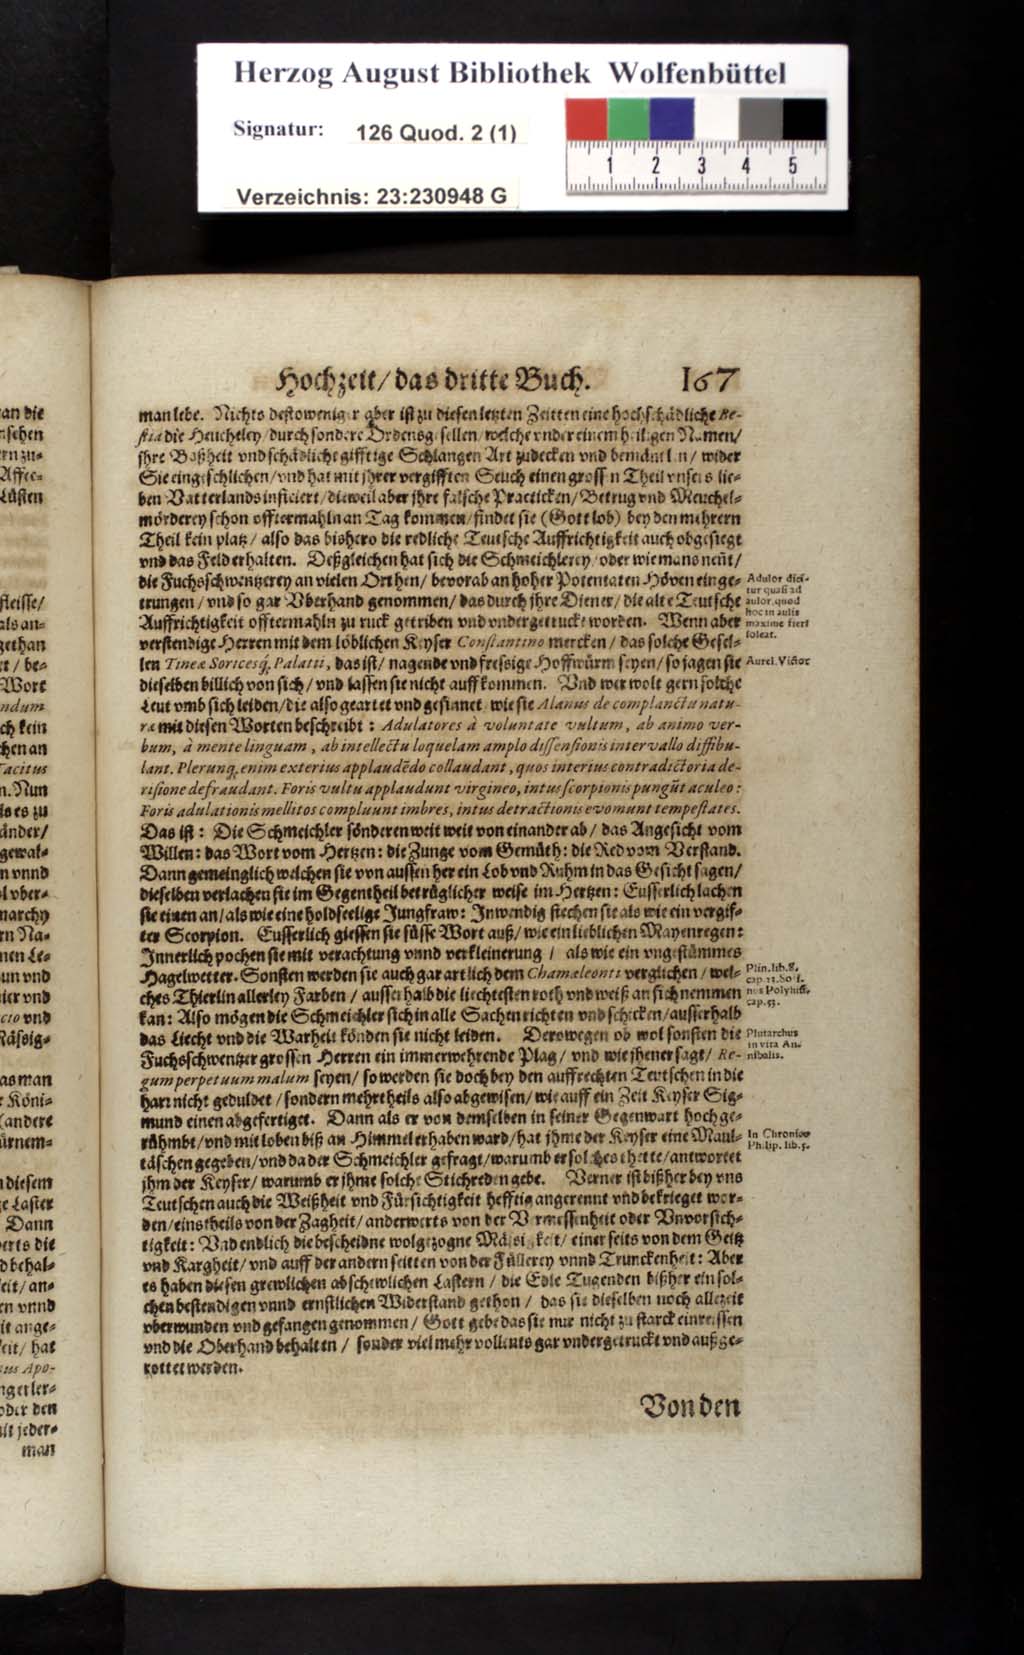 Herzog August Bibliothek Wolfenbüttel
Signatur: 126 Quod. 2 (1)
1 2 3 4 5
Verzeichnis: 23:230948 G
Hochzeit/ das dritte Buch. 167
man lebe. Nichts destoweniger aber ist zu diesen letzten Zeitten eine hochschädliche Be-
stia die Heucheley/ durch sondere Ordensgsellen/ welche vnder einem heiligen Namen/
jhre Boßheit vnd schädliche gifftige Schlangen Art zudecken vnd bemänteln/ wider
Sie eingeschlichen/ vnd hat mit jhrer vergifften Seuch einen grossen Theil vnsers lie-
ben Vatterlands inficiert/ dieweil aber jhre falsche Practicken/ Betrug vnd Meuchel-
mörderey schon offtermahln an Tag kommen/ findet sie (Gott lob) bey den mehrern
Theil kein platz/ also das bishero die redliche Teutsche Auffrichtigkeit auch obgesiegt
vnd das Feld erhalten. Deßgleichen hat sich die Schmeichlerey/ oder wie mans neñt/
die Fuchsschwentzerey an vielen Orthen/ bevorab an hoher Potentaten Höven einge-
trungen/ vnd so gar Vberhand genommen/ das durch jhre Diener/ die alte Teutsche
Auffrichtigkeit offtermahln zu ruck getriben vnd vndergetruckt worden. Wenn aber
verstendige Herren mit dem löblichen Keyser Constantino mercken/ das solche Gesel-
len Tineæ Soricesq́. Palatii, das ist/ nagende vnd fressige Hoffwürm seyen/ so jagen sie
dieselben billich von sich/ vnd lassen sie nicht auffkommen. Vnd wer wolt gern solche
Leut vmb sich leiden/ die also geartet vnd gesianet wie sie Alanus de complanctu natu-
ræ mit diesen Worten beschreibt: Adulatores à voluntate vultum, ab animo ver-
bum, à mente linguam, ab intellectu loquelam amplo dissensionis intervallo diffibu-
lant. Plerunq́. enim exterius applaudēdo collaudant, quos interius contradictoria de-
risione defraudant. Foris vultu applaudunt virgineo, intus scorpionis pungũt aculeo:
Foris adulationis mellitos compluunt imbres, intus detractionis evomunt tempestates.
Das ist: Die Schmeichler sönderen weit weit von einander ab/ das Angesicht vom
Willen: das Wort vom Hertzen: die Zunge vom Gemüth: die Red vom Verstand.
Dann gemeinglich welchen sie von aussen her ein Lob vnd Ruhm in das Gesicht sagen/
dieselben verlachen sie im Gegentheil betrüglicher weise im Hertzen: Eusserlich lachen
sie einen an/ als wie eine holdseelige Jungfraw: Inwendig stechen sie als wie ein vergif-
ter Scorpion. Eusserlich giessen sie süsse Wort auß/ wie ein lieblichen Mayenregen:
Innerlich pochen sie mit verachtung vnnd verkleinerung/ als wie ein vngestümmes
Hagelwetter. Sonsten werden sie auch gar artlich dem Chamæleonti verglichen/ wel-
ches Thierlin allerley Farben/ ausserhalb die liechtesten roth vnd weiß an sich nemmen
kan: Also mögen die Schmeichler sich in alle Sachen richten vnd schicken/ ausserhalb
das Liecht vnd die Warheit könden sie nicht leiden. Derowegen ob wol sonsten die
Fuchsschwentzer grossen Herren ein immerwehrende Plag/ vnd wie jhener sagt/ Re-
gum perpetuum malum seyen/ so werden sie doch bey den auffrechten Teutschen in die
hart nicht geduldet/ sondern mehrtheils also abgewisen/ wie auff ein Zeit Keyser Sig-
mund einen abgefertiget. Dann als er von demselben in seiner Gegenwart hochge-
rühmbt/ vnd mit loben biß an Himmel erhaben ward/ hat jhme der Keyser eine Maul-
täschen gegeben/ vnd da der Schmeichler gefragt/ warumb er solches thette/ antwortet
jhm der Keyser/ warumb er jhme solche Stichreden gebe. Verner ist bißher bey vns
Teutschen auch die Weißheit vnd Fürsichtigkeit hefftig angerennt vnd bekrieget wor-
den/ einstheils von der Zagheit/ anderwerts von der Vermessenheit oder Vnvorsich-
tigkeit: Vnd endlich die bescheidne wolgezogne Mäsigkeit/ einer seits von dem Geitz
vnd Kargheit/ vnd auff der andern seitten von der Füllerey vnnd Trunckenheit: Aber
es haben diesen grewlichen abschewlichen Lastern/ die Edle Tugenden bißher ein sol-
chen bestendigen vnnd ernstlichen Widerstand gethon/ das sie dieselben noch allezeit
vberwunden vnd gefangen genommen/ Gott gebe das sie nur nicht zu starck einreissen
vnd die Oberhand behalten/ sonder viel mehr vollents gar vndergetruckt vnd außge-
rottet werden.
Von den
Adulor dici-
tur quasi ad
aulor, quod
hoc in aulis
maxime fieri
soleat.
Aurel. Victor
Plin. lib. 8.
cap. 33.
cap. 53.
Plutarchus
in vita An-
nibalis.
In Chronico
Philip. lib. 5.